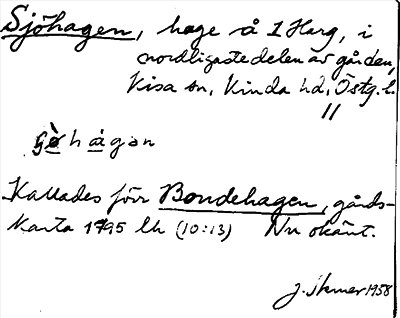 Sjöhagen, hage å 1 Harg, i
nordligaste delen av gården,
Kisa sn, Kinda hd, Östg. l.
hagan
Kallades förr Bondehagen, gårds-
karta 1795 lh (10:13) Nu okänt.
J. 1958